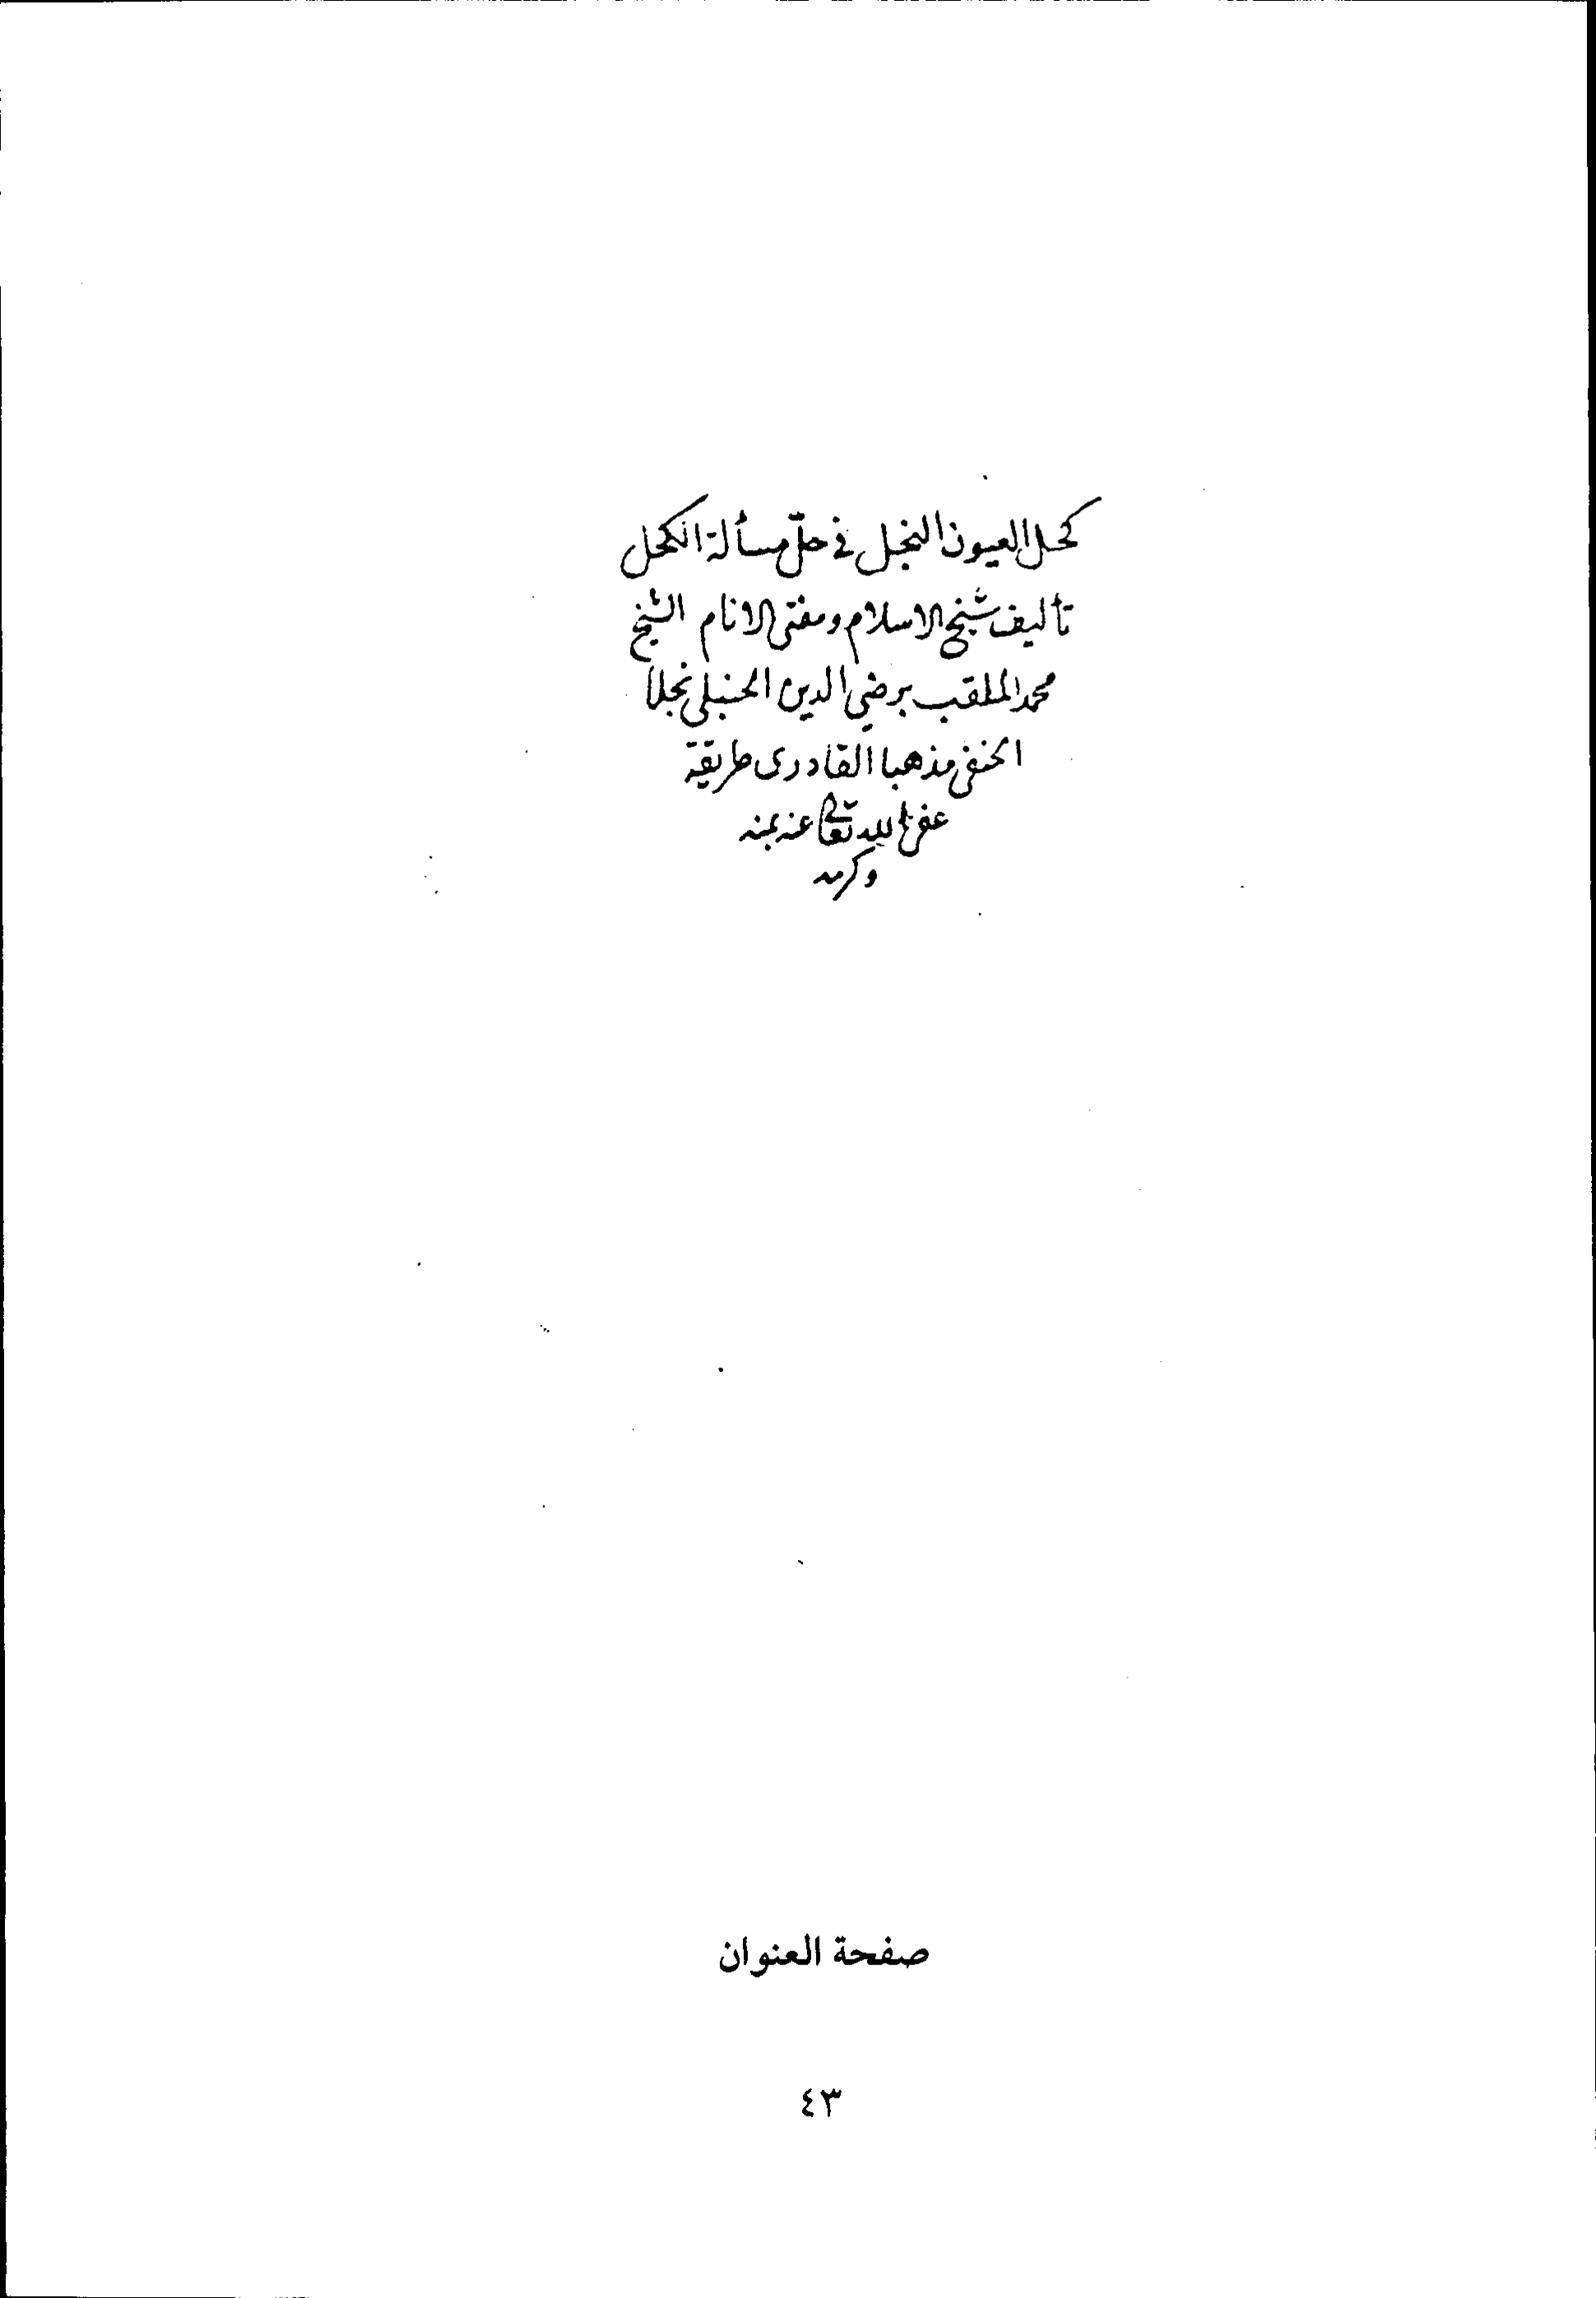 كحل العيون النجل في حلّ مسألة الكحل
تأليف شيخ الاسلام ومفتى الانام الشيخ
محمد الملقب برضي الدين الحنبلي نجلا
الحنفى مذهبا القادرى طريقة
عفى الله تعالى عنه بمنه
وكرمه
صفحة العنوان
٤٣